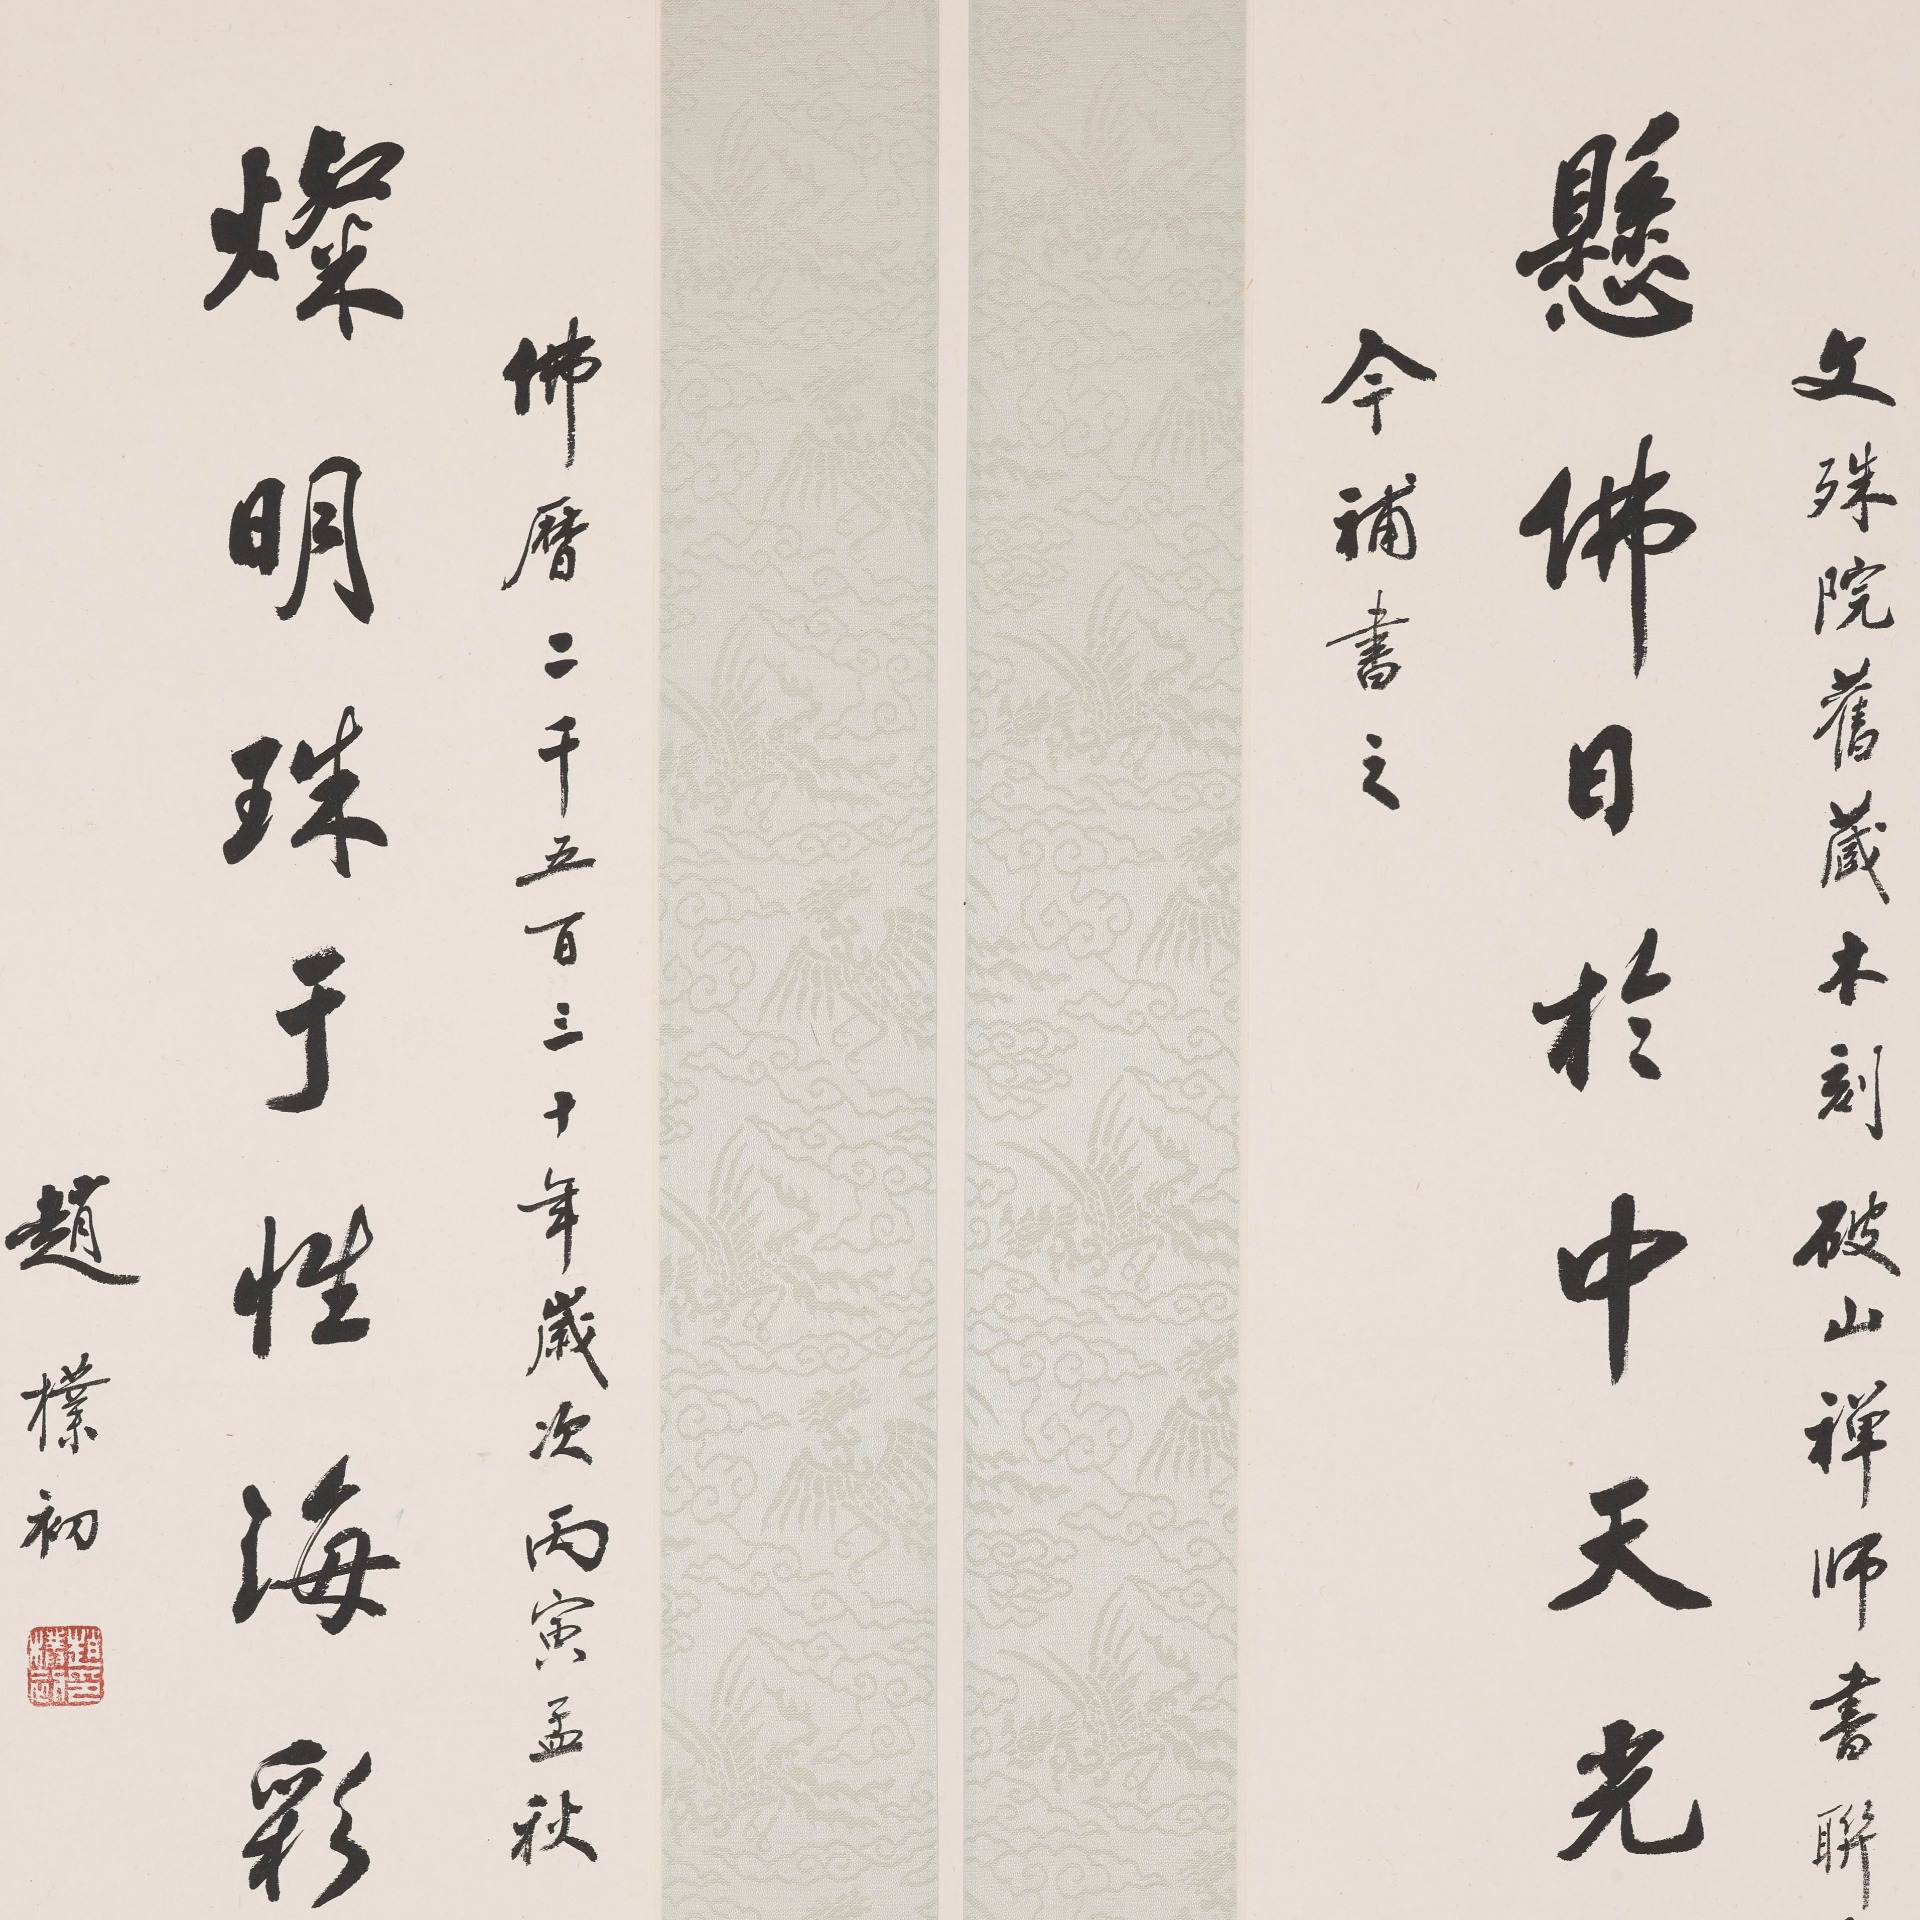 文殊院舊藏木刻破山禅师書聯
懸佛日於中天光
今補書之
佛曆二千五百三十年歲次丙寅孟秋
燦明珠于性海彩
趙樸初